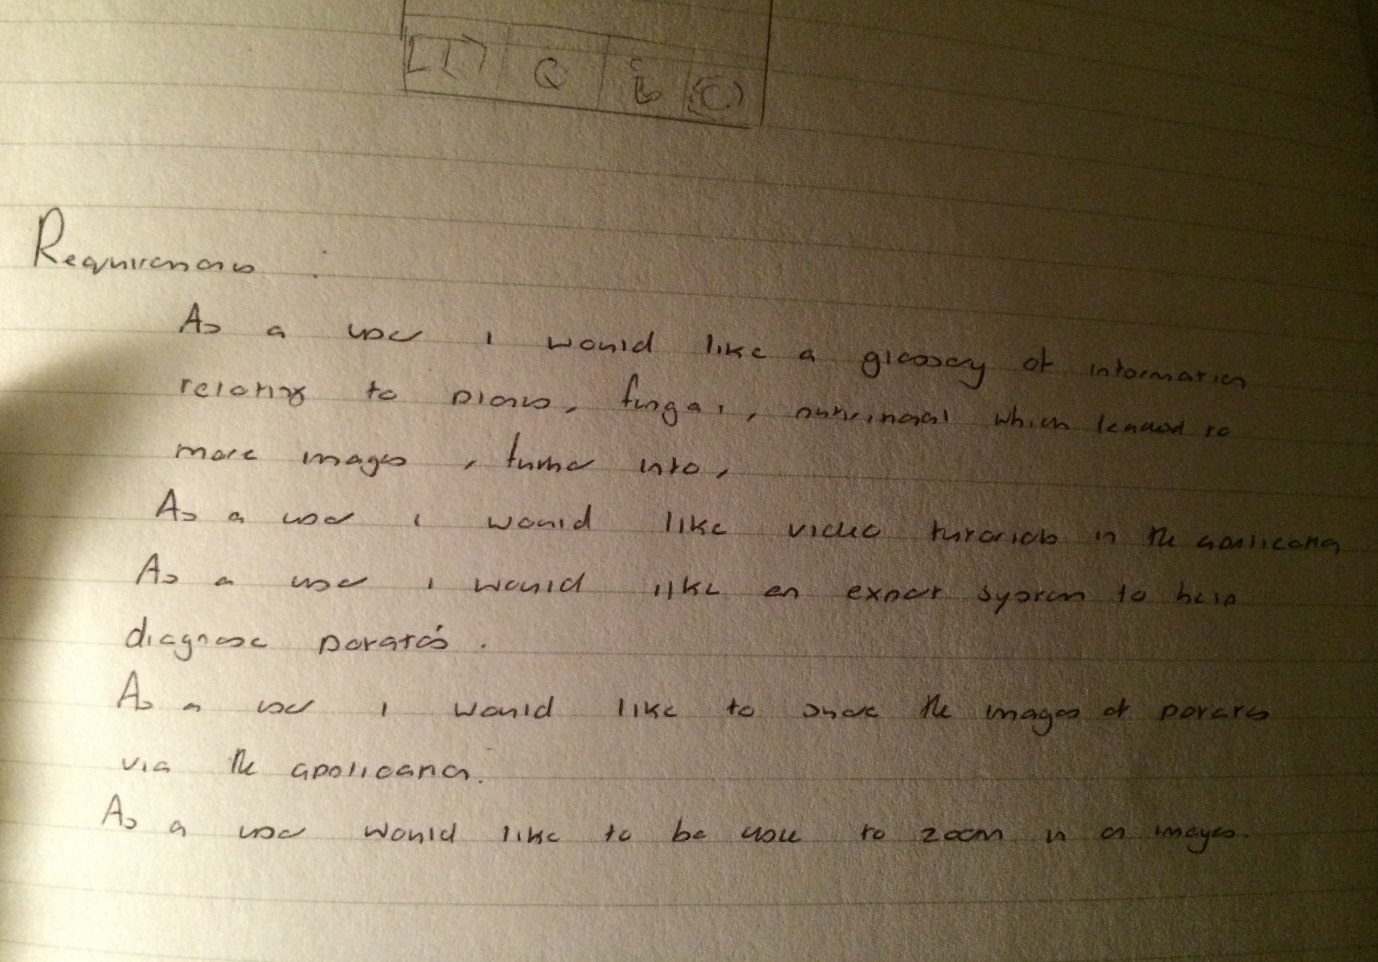 Q i
Requirements :
As a user I would like a glossary of information
relating to , fungal, nutritional which leads to
more images, further info,
As a user I would like video tutorials in the application
As a user I would like an expert system to help
diagnose potato's.
As a user I would like to share the images of potatoes
via the application.
As a user would like to be able to zoom in on images.